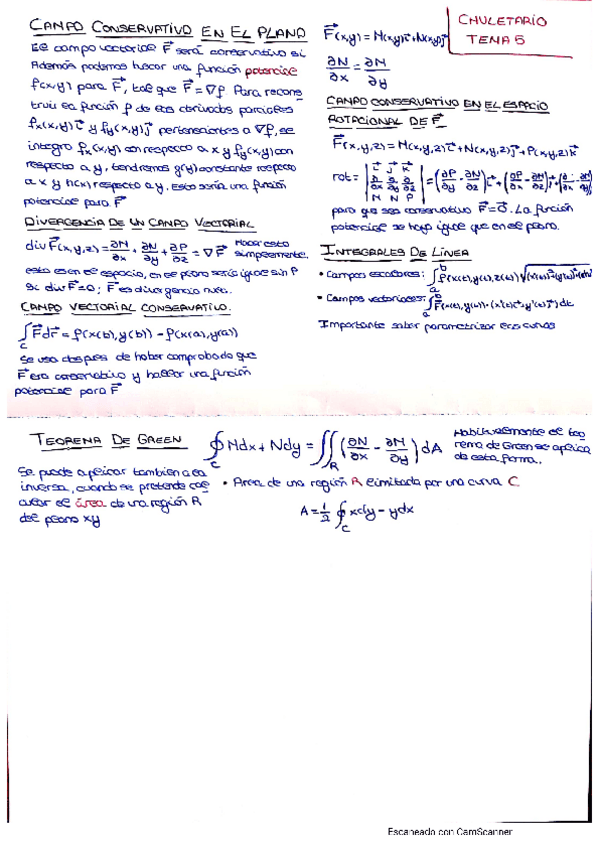 CHULETARIO
TEMA 5
CAMPO CONSERVATIVO EN EL PLANO
El campo vectorial F⃗ será conservativo si
Además podemos buscar una función potencial
f(x,y) para F⃗, tal que F⃗ = ∇f. Para recons
truir la función f de las derivadas parciales
fx(x,y) i⃗ y fy(x,y) j⃗ pertenecientes a ∇f, se
integra fx(x,y) con respecto a x y fy(x,y) con
respecto a y, tendremos g(y) constante respecto
a x y h(x) respecto a y. Esto sería una función
potencial para F⃗
DIVERGENCIA DE UN CAMPO VECTORIAL
div F⃗(x,y,z) = ∂M/∂x + ∂N/∂y + ∂P/∂z = ∇F⃗ Hacer esto
simplemente.
esto es en el espacio, en el plano sería igual sin P
Si div F⃗ = 0; F⃗ es divergencia nula.
CAMPO VECTORIAL CONSERVATIVO.
∫C F⃗ dr⃗ = f(x(b), y(b)) - f(x(a), y(a))
Se usa después de haber comprobado que
F⃗ era conservativo y hallar una función
potencial para F⃗
F⃗(x,y) = M(x,y) i⃗ + N(x,y) j⃗
∂N/∂x = ∂M/∂y
CAMPO CONSERVATIVO EN EL ESPACIO
ROTACIONAL DE F⃗
F⃗(x,y,z) = M(x,y,z) i⃗ + N(x,y,z) j⃗ + P(x,y,z) k⃗
rot = | i⃗ j⃗ k⃗ ; ∂/∂x ∂/∂y ∂/∂z ; M N P | = (∂P/∂y - ∂N/∂z) i⃗ + (∂P/∂x - ∂M/∂z) j⃗ +
para que sea conservativo F⃗ = 0⃗. La función
potencial se haya igual que en el plano.
INTEGRALES DE LÍNEA
• Campos escalares: ∫ₐᵇ f(x(t), y(t), z(t))
• Campos vectoriales: ∫ₐᵇ F⃗(x(t), y(t)) · (x'(t) i⃗ + y'(t) j⃗) dt
Importante saber parametrizar las curvas
TEOREMA DE GREEN
∮C Mdx + Ndy = ∬R (∂N/∂x - ∂M/∂y) dA
Habitualmente el teo
rema de Green se aplica
de esta forma.
Se puede aplicar también a la
inversa, cuando se pretende cal
cular el área de una región R
del plano xy
• Area de una región R limitada por una curva C
A = 1/2 ∮C xdy - ydx
Escaneado con CamScanner